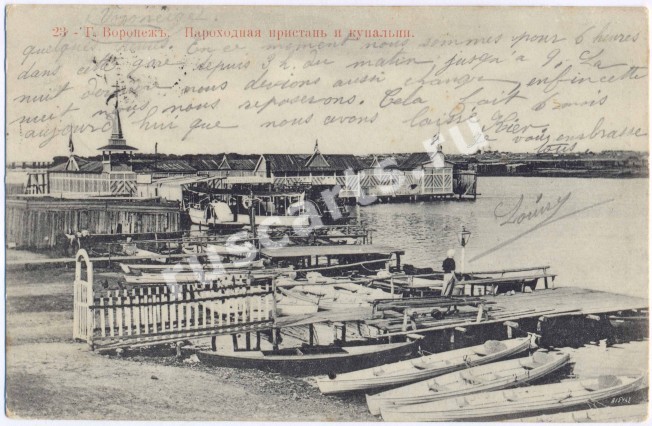 Voroneige
23 - Г. Воронежъ. Пароходная пристань и купальни.
quelques jours. En ce moment nous sommes pour 6 heures
dans cette gare depuis 3 h. du matin jusqu'a 9. La
nuit derniere nous devions aussi changer enfin cette
nuit nous nous reposerons. Cela fait 6 mois
aujourd'hui que nous avons laissé Kiev
je vous embrasse
tous
Louise
ruscarts.ru